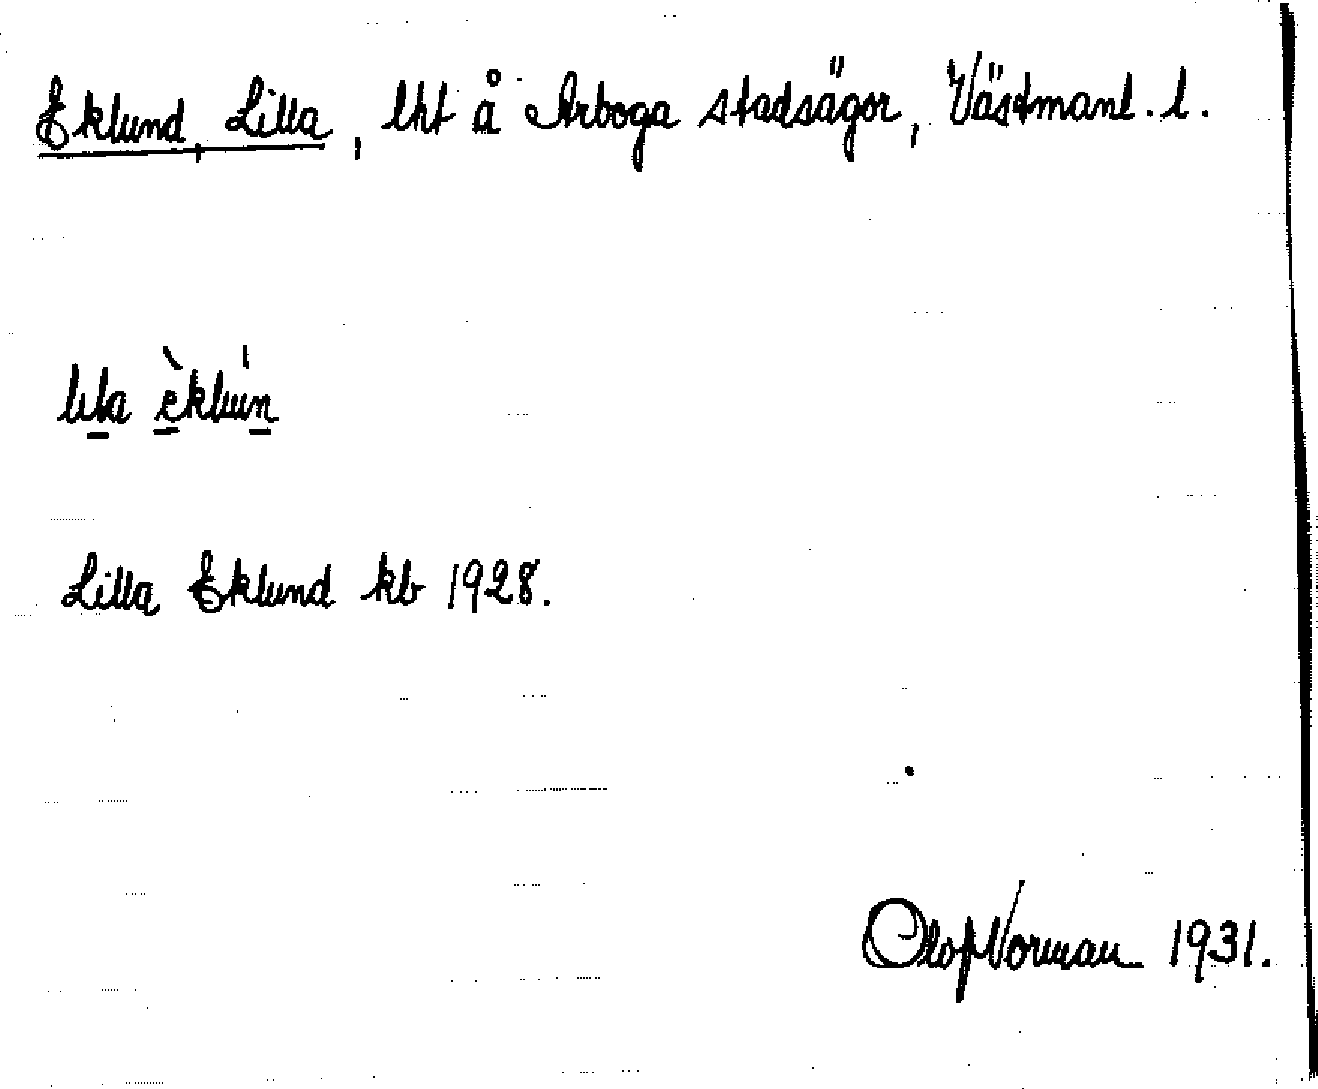 Eklund, Lilla, lht å Arboga stadsägor, Västmanl. l.
lıla èklun
Lilla Eklund kb 1928.
Olof Norman 1931.